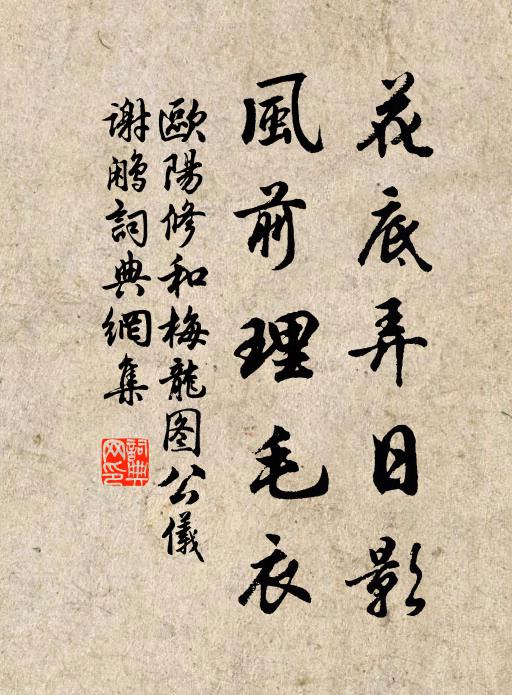 花底弄日影
風前理毛衣
歐陽修和梅龍图公儀
谢鹇詞典網集
詞典
网印